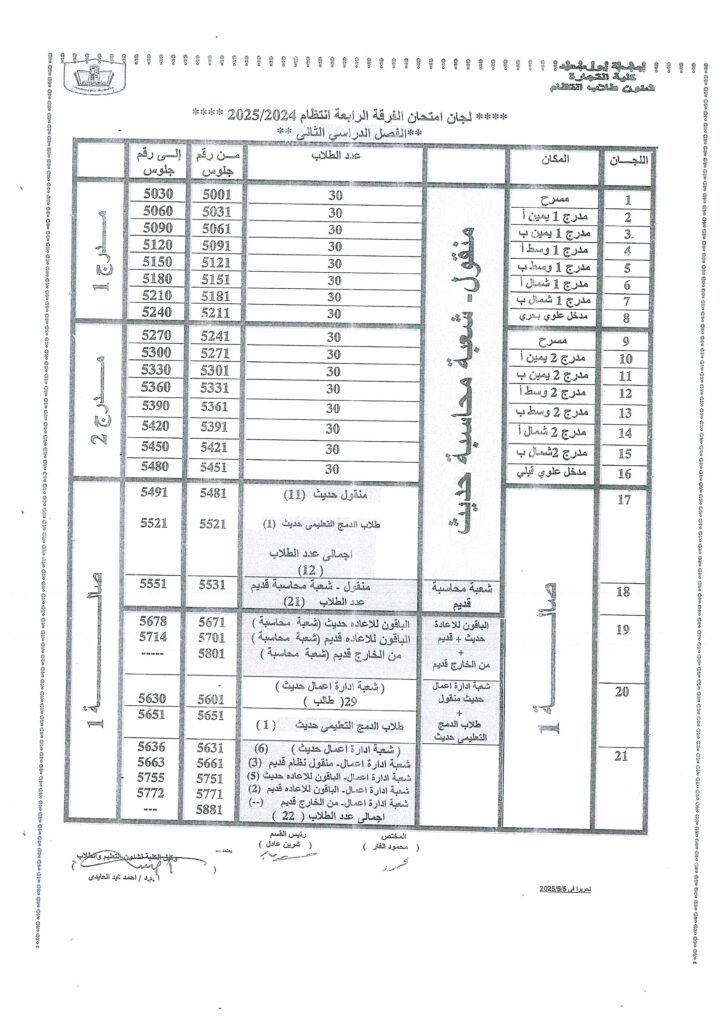 جامعة بورسعيد
كلية التجارة
شئون طلاب انتظام
**** لجان امتحان الفرقة الرابعة انتظام 2025/2024 ****
**الفصل الدراسي الثاني **
اللجان المكان عدد الطلاب من رقم جلوس إلى رقم جلوس
منقول - شعبة محاسبة حديث
مدرج 1
1 مسرح 30 5001 5030
2 مدرج 1 يمين أ 30 5031 5060
3 مدرج 1 يمين ب 30 5061 5090
4 مدرج 1 وسط أ 30 5091 5120
5 مدرج 1 وسط ب 30 5121 5150
6 مدرج 1 شمال أ 30 5151 5180
7 مدرج 1 شمال ب 30 5181 5210
8 مدخل علوي بحري 30 5211 5240
مدرج 2
9 مسرح 30 5241 5270
10 مدرج 2 يمين أ 30 5271 5300
11 مدرج 2 يمين ب 30 5301 5330
12 مدرج 2 وسط أ 30 5331 5360
13 مدرج 2 وسط ب 30 5361 5390
14 مدرج 2 شمال أ 30 5391 5420
15 مدرج 2شمال ب 30 5421 5450
16 مدخل علوي قبلي 30 5451 5480
صالة 1
صالة 1
17 منقول حديث (11) 5481 5491
طلاب الدمج التعليمى حديث (1) 5521 5521
اجمالى عدد الطلاب
(12 )
18 شعبة محاسبة قديم منقول - شعبة محاسبة قديم 5531 5551
عدد الطلاب (21)
19 الباقون للاعادة حديث + قديم + من الخارج قديم
الباقون للاعاده حديث (شعبة محاسبة ) 5671 5678
الباقون للاعاده قديم (شعبة محاسبة ) 5701 5714
من الخارج قديم (شعبة محاسبة ) 5801 -----
20 شعبة ادارة اعمال حديث منقول + طلاب الدمج التعليمى حديث
( شعبة ادارة اعمال حديث )
29( طالب ) 5601 5630
طلاب الدمج التعليمى حديث ( 1 ) 5651 5651
21 ( شعبة ادارة اعمال حديث ) (6) 5631 5636
شعبة ادارة اعمال- منقول نظام قديم (3) 5661 5663
شعبة ادارة اعمال- الباقون للاعاده حديث (5) 5751 5755
شعبة ادارة اعمال- الباقون للاعاده قديم (2) 5771 5772
شعبة ادارة اعمال- من الخارج قديم (--) 5881 ---
اجمالى عدد الطلاب ( 22 )
المختص رئيس القسم يعتمد ...
( محمود الفار ) ( شرين عادل ) وكيل الكلية لشئون التعليم والطلاب
( ا.م.د / احمد عبد العايدى )
تحريرا فى 2025/5/5